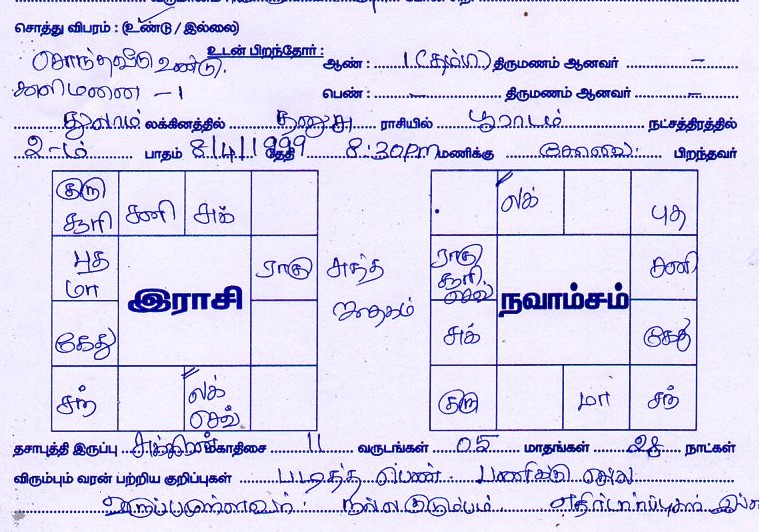 சொத்து விபரம் : (உண்டு / இல்லை)
சொந்தவீடு உண்டு. உடன் பிறந்தோர் : ஆண் : 1 (தம்பி) திருமணம் ஆனவர் –
காலிமனை – 1 பெண் : – திருமணம் ஆனவர் –
துலாம் லக்கினத்தில் தனுசு ராசியில் பூராடம் நட்சத்திரத்தில்
2-ம் பாதம் 8/4/1999 தேதி 8:30PM மணிக்கு சேலம் பிறந்தவர்
குரு சூரி சனி சுக்
புத மா ராகு
இராசி
கேது
சந் லக் செவ்
சுத்த ஜாதகம்
லக் புத
ராகு சூரி செவ் சனி
நவாம்சம்
சுக் கேது
குரு மா சந்
தசாபுத்தி இருப்பு சுக்கிரன் மகாதிசை 11 வருடங்கள் 05 மாதங்கள் 28 நாட்கள்
விரும்பும் வரன் பற்றிய குறிப்புகள் படித்த பெண். பணிக்கு செல்ல
விருப்பமுள்ளவர். நல்ல குடும்பம். எதிர்பார்ப்புகள்